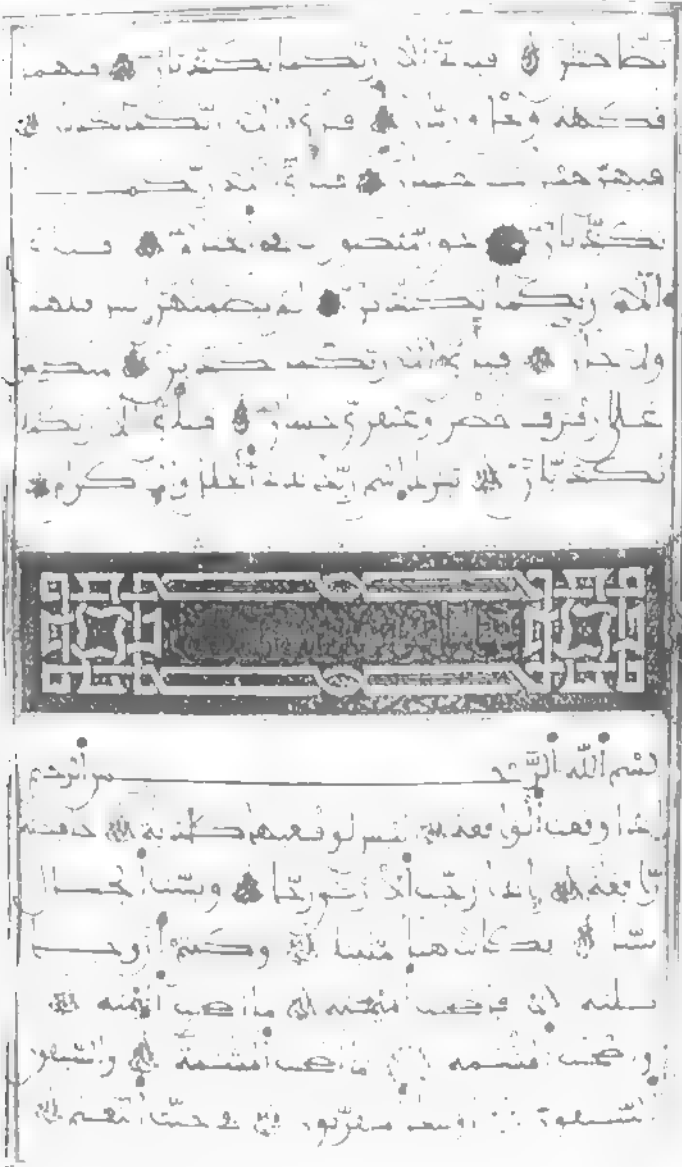 نضاختان فبأي الاء ربكما تكذبان فيهما
فكهة ونخل ورمان فبأي الاء ربكما تكذبان
فيهن خيرت حسان فبأي الاء ربكما
تكذبان حور مقصورت في الخيام فبأي
الاء ربكما تكذبان لم يطمثهن إنس قبلهم
ولا جان فبأي الاء ربكما تكذبان متكين
على رفرف خضر وعبقري حسان فبأي الاء ربكما
تكذبان تبرك اسم ربك ذي الجلل والاكرام
بسم الله الرحمن الرحيم
إذا وقعت الواقعة ليس لوقعتها كاذبة خافضة
رافعة إذا رجت الارض رجا وبست الجبال
بسا فكانت هباء منبثا وكنتم أزوجا
ثلثة فأصحب الميمنة ما أصحب الميمنة
وأصحب المشمة ما أصحب المشمة والسبقون
السبقون أولئك المقربون في جنت النعيم